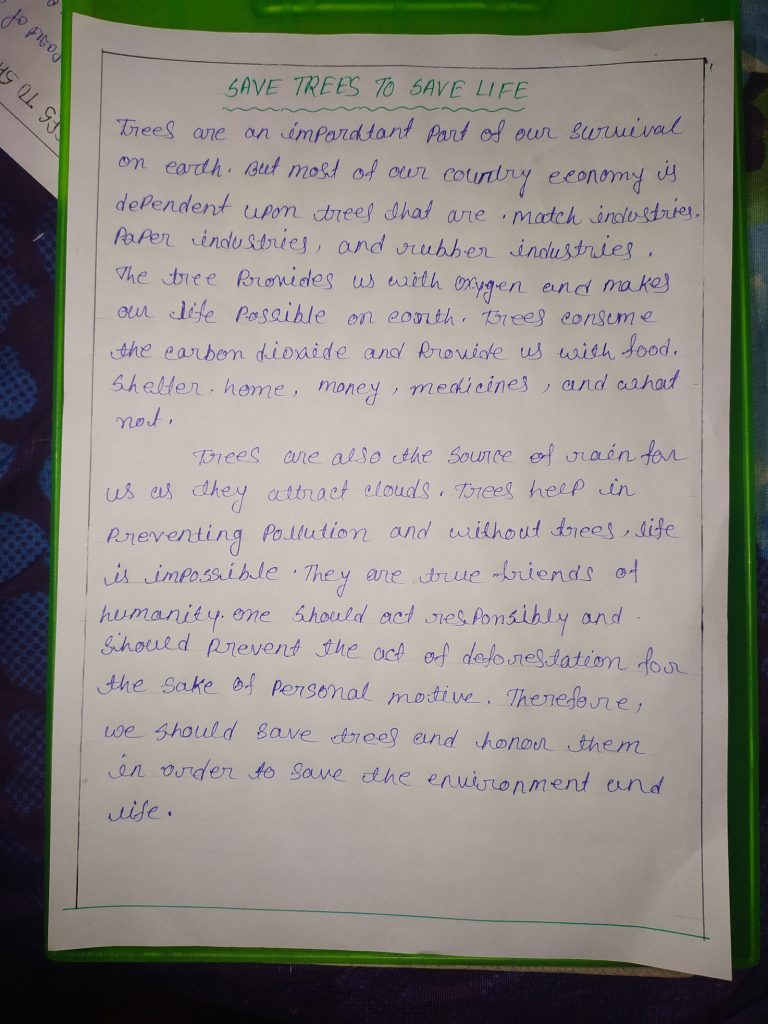 SAVE TREES TO SAVE LIFE
Trees are an impordtant part of our survival
on earth. But most of our country economy is
dependent upon trees that are . match industries.
Paper industries, and rubber industries.
The tree Provides us with oxygen and makes
our life Possible on earth. Trees consume
the carbon dioxide and Provide us with food.
Shelter. home, money, medicines, and what
not.
Trees are also the source of rain for
us as they attract clouds. Trees help in
Preventing Pollution and without trees, life
is impossible. They are true friends of
humanity. one should act responsibly and
Should Prevent the act of deforestation for
the sake of Personal motive. Therefore,
we should save trees and honor them
in order to save the environment and
life.